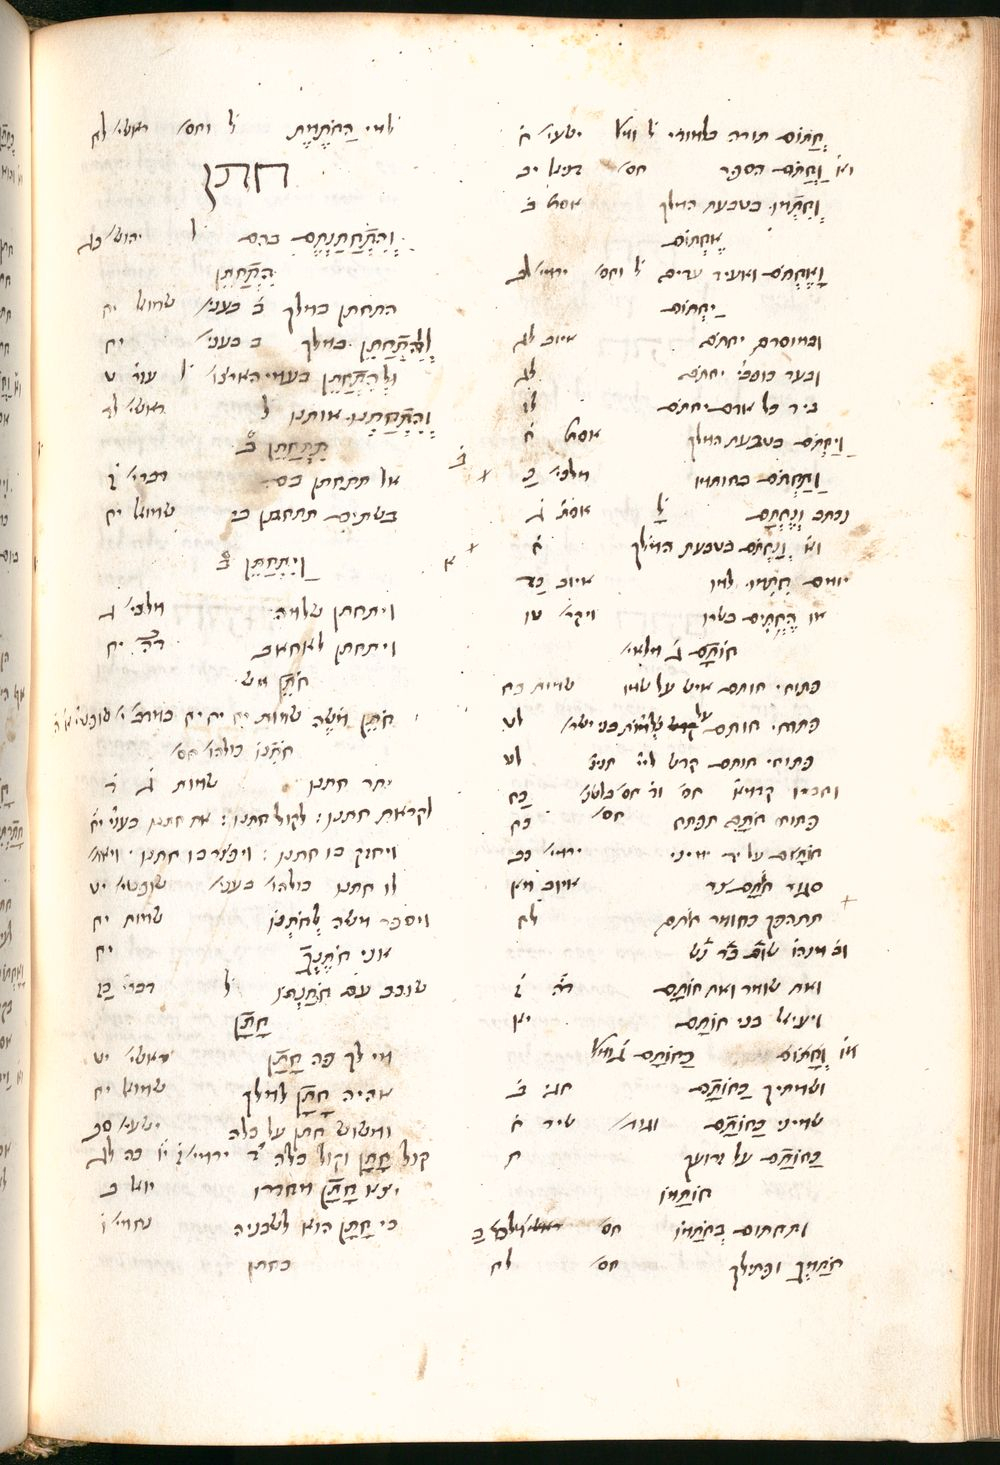 חֲתוֹם תורה בלמודי ל׳ ומל׳ ישעי׳ ח
וא׳ וַחֲתֹם הספר חס׳ דניאל יב
וְחִתְמוּ בטבעת המלך אסת׳ ב
אֶחְתּוֹם
וָאֶחְתֹּם ואעיד עדים ל׳ וחס׳ ירמי׳ לב
יַחְתּוֹם
ובמוסרם יחתם איוב לג
ובעד כוכבי׳ יחתם
ביד כל אדם יחתום לז
וַיַּחְתֹּם בטבעת המלך אסת׳ ח
וַתַּחְתֹּם בחותמו מלכי׳
נכתב וְנֶחְתָּם ל׳ אסת׳ ג
וא׳ וְנַחְתֹּם בטבעת המלך ח
יומם חִתְּמוּ למו איוב כד
או הֶחְתִּים בשרו ויקר׳ טו
חוֹתָם ג׳ מלאי׳
פתוחי חותם איש על שמו שמות כח
פתוחי חותם על שמות בני ישר׳ לט
פתוחי חותם קדש ליי׳ לט
פתוחי חֹתָם תפתח חס׳ כח
חוֹתָם על יד ימיני ירמי׳ כב
סגור חֹתָם צר איוב מא
תתהפך כחומר חותם לח
ואת שומר ואת חוֹתָם דה׳ ז
ויעיאל בני חוֹתָם יא
ושמתיך כַּחוֹתָם חגי ב
שימני כַחוֹתָם שיר ח
כַּחוֹתָם על זרועך ח
חוֹתָמוֹ
ותחתום בְּחֹתָמוֹ חס׳
חֹתָמְךָ ופתילך חס׳ לח
למי הַחֹתֶמֶת ל׳ וחס׳ ראשי׳ לח
חתן
וְהִתְחַתַּנְתֶּם בהם ל׳ יהוש׳ כג
הִתְחַתֵּן
התחתן במלך ב׳ בעני׳ שמואל יח
לְהִתְחַתֵּן במלך ב בעני׳ יח
וּלְהִתְחַתֵּן בעמי הארצו׳ ל׳ עזר׳ ט
וְהִתְחַתְּנוּ אותנו ל׳ ראשי׳ לד
תִתְחַתֵּן ב׳
ולא תתחתן בם דברי׳ ז
בשתים תתחתן בי שמואל יח
וַיִּתְחַתֵּן ב׳
ויתחתן שלמה מלכי׳ ג
ויתחתן לאחאב דה׳ יח
חֹתֵן מש׳
חֹתֵן מֹשֶׁה שמות יח יח יח
חֹתְנוֹ כולהו חס׳
יתר חתנו שמות ג ד
לקראת חתנו: לקול חתנו: את חתנו בעני׳ יח
ויחזק בו חתנו: ויפצר בו חתנו
לו חתנו כולהו בעני׳ שופטי׳ יט
ויספר משה לְחֹתְנוֹ שמות יח
אני חֹתֶנְךָ יח
שוכב עם חֹתַנְתּוֹ ל׳ דברי׳ כז
חָתָן
מי לך פה חָתָן ראשי׳ יט
אהיה חָתָן למלך שמואל יח
ומשוש חתן על כלה ישעי׳ סב
קול חָתָן וקול כלה ד׳ ירמי׳ ז יו כה לג
יצא חָתָן מחדרו יואל ב
כי חָתָן הוא לשכניה נחמי׳ ו
כחתן